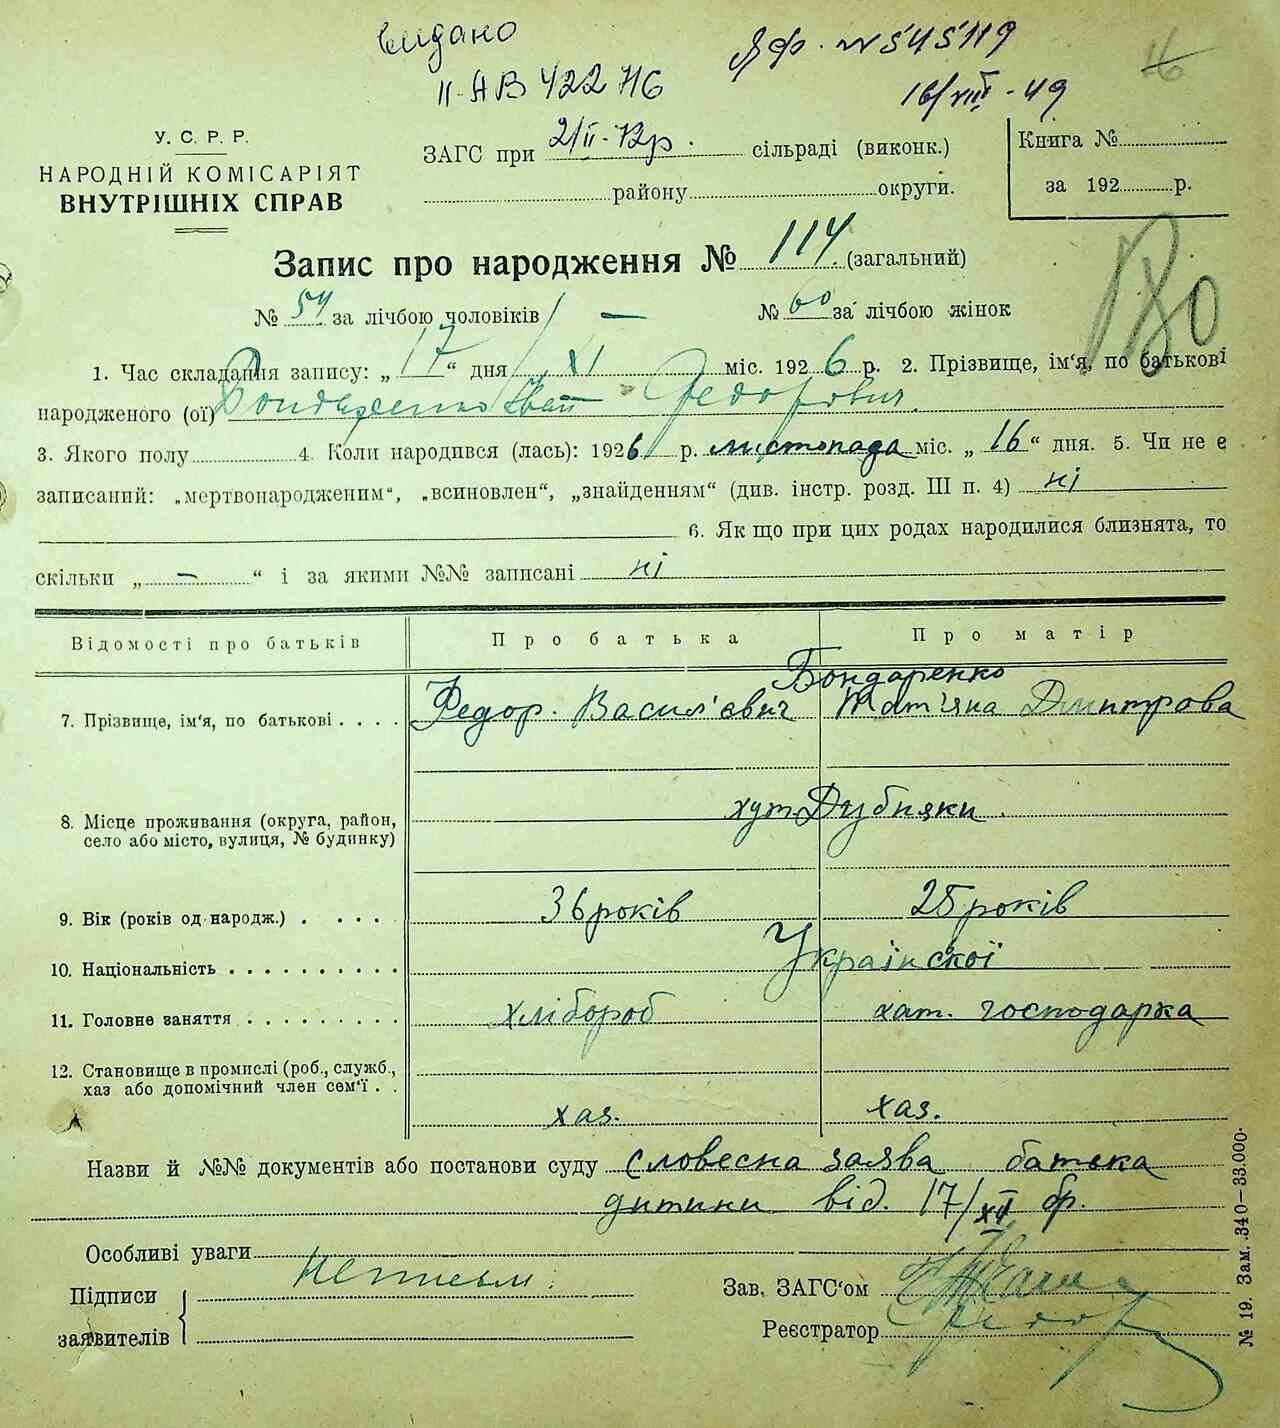 видано
II-АВ 42276
16/VIII - 49
У. С. Р. Р.
НАРОДНІЙ КОМІСАРІЯТ
ВНУТРІШНІХ СПРАВ
ЗАГС при сільраді (виконк.)
району округи.
Книга №
за 192 р.
Запис про народження № 114 (загальний)
№ 54 за лічбою чоловіків — № 60 за лічбою жінок
1. Час складання запису: „17“ дня XI міс. 1926 р. 2. Прізвище, ім'я, по батькові
народженого (ої) Бондаренко Іван Федорович.
3. Якого полу 4. Коли народився (лась): 1926 р. листопада міс. „16“ дня. 5. Чи не є
записаний: „мертвонародженим“, „всиновлен“, „знайденням“ (див. інстр. розд. III п. 4) ні
6. Як що при цих родах народилися близнята, то
скільки „ - “ і за якими №№ записані ні
Відомості про батьків Про батька Про матір
Бондаренко
7. Прізвище, ім'я, по батькові . . . . Федор. Васил'євич Тат'яна Дмитрова
8. Місце проживання (округа, район,
село або місто, вулиця, № будинку)
хут. Дубняки.
9. Вік (років од народж.) . . . . 36 років 25 років
10. Національність . . . . . . . . . . Українскої
11. Головне заняття . . . . . . . . . хлібороб хат. господарка
12. Становище в промислі (роб., служб.,
хаз або допомічний член сем'ї . .
хаз. хаз.
Назви й №№ документів або постанови суду словесна заява батька
дитини від. 17/XI бр.
Особливі уваги
Неписьм.
Підписи
заявителів
Зав. ЗАГС'ом
Реєстратор
№ 19. Зам. 340—33.000.